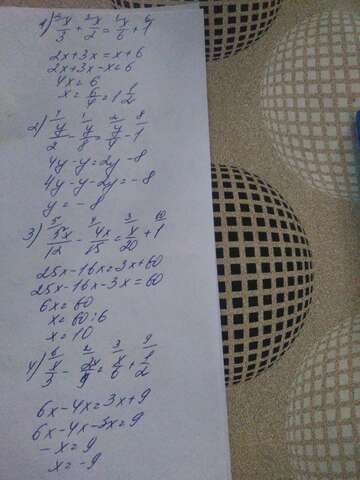 1) x/3 + x/2 = x/6 + 1
2x+3x=x+6
2x+3x-x=6
4x=6
x=6/4=1 1/2
2) y/2 - y/8 = y/4 - 1
4y-y=2y-8
4y-y-2y=-8
y=-8
3) 5x/12 - 4x/15 = x/20 + 1
25x-16x=3x+60
25x-16x-3x=60
6x=60
x=60:6
x=10
4) x/3 - 2x/9 = x/6 + 1/2
6x-4x=3x+9
6x-4x-3x=9
-x=9
x=-9